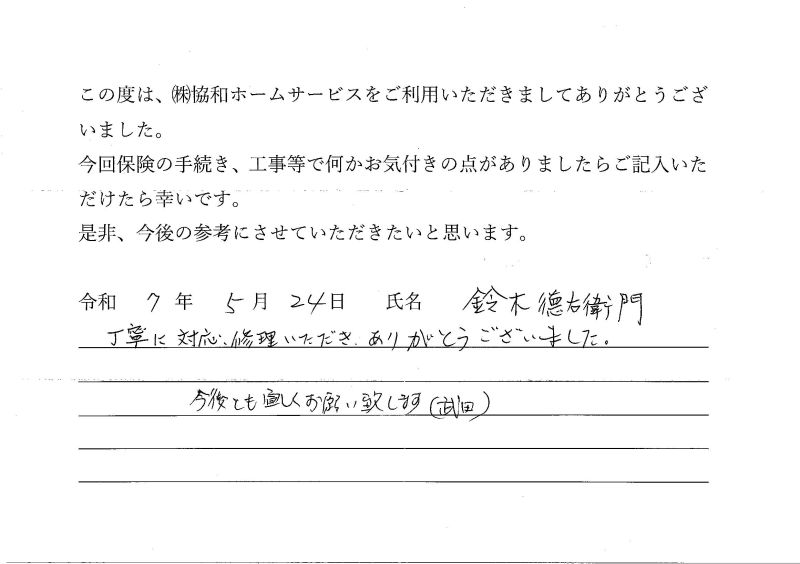 この度は、㈱協和ホームサービスをご利用いただきましてありがとうござ
いました。
今回保険の手続き、工事等で何かお気付きの点がありましたらご記入いた
だけたら幸いです。
是非、今後の参考にさせていただきたいと思います。
令和 7 年 5 月 24 日 氏名 鈴木德右衛門
丁寧に対応、修理いただき、ありがとうございました。
今後とも宜しくお願い致します(武田)